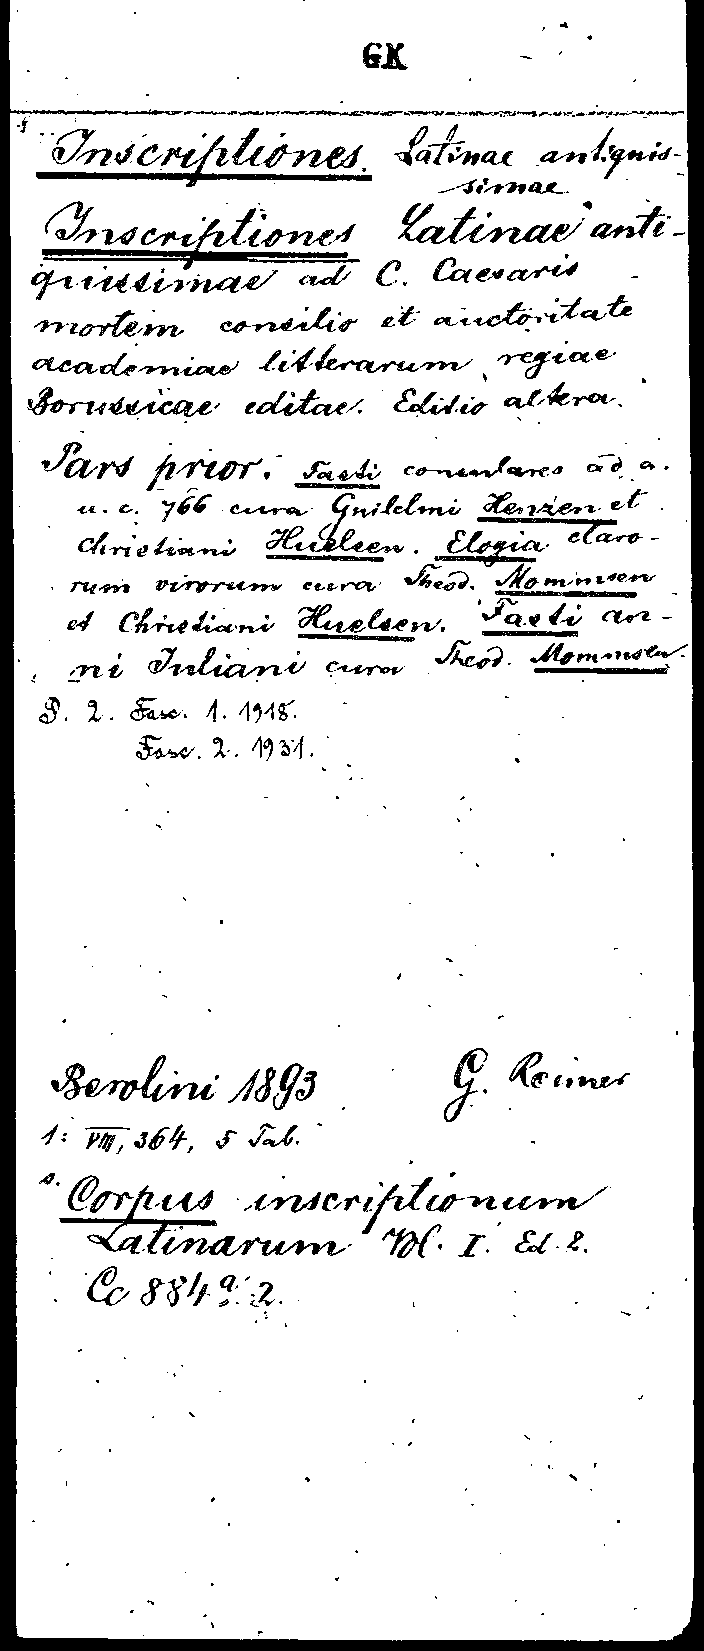 GK
Inscriptiones. Latinae antiquis-
simae
Inscriptiones Latinae anti-
quissimae ad C. Caesaris
mortem consilio et auctoritate
academiae litterarum regiae
Borussicae editae. Editio altera.
Pars prior. Fasti consulares ad a.
u. c. 766 cura Guilelmi Henzen et
Christiani Huelsen. Elogia claro-
rum virorum cura Theod. Mommsen
et Christiani Huelsen. Fasti an-
ni Iuliani cura Theod. Mommsen.
P. 2. Fasc. 1. 1918.
Fasc. 2. 1931.
Berolini 1893 G. Reimer
1: VIII, 364, 5 Tab.
s. Corpus inscriptionum
Latinarum Vol. I. Ed. 2.
Cc 884 a: 2.